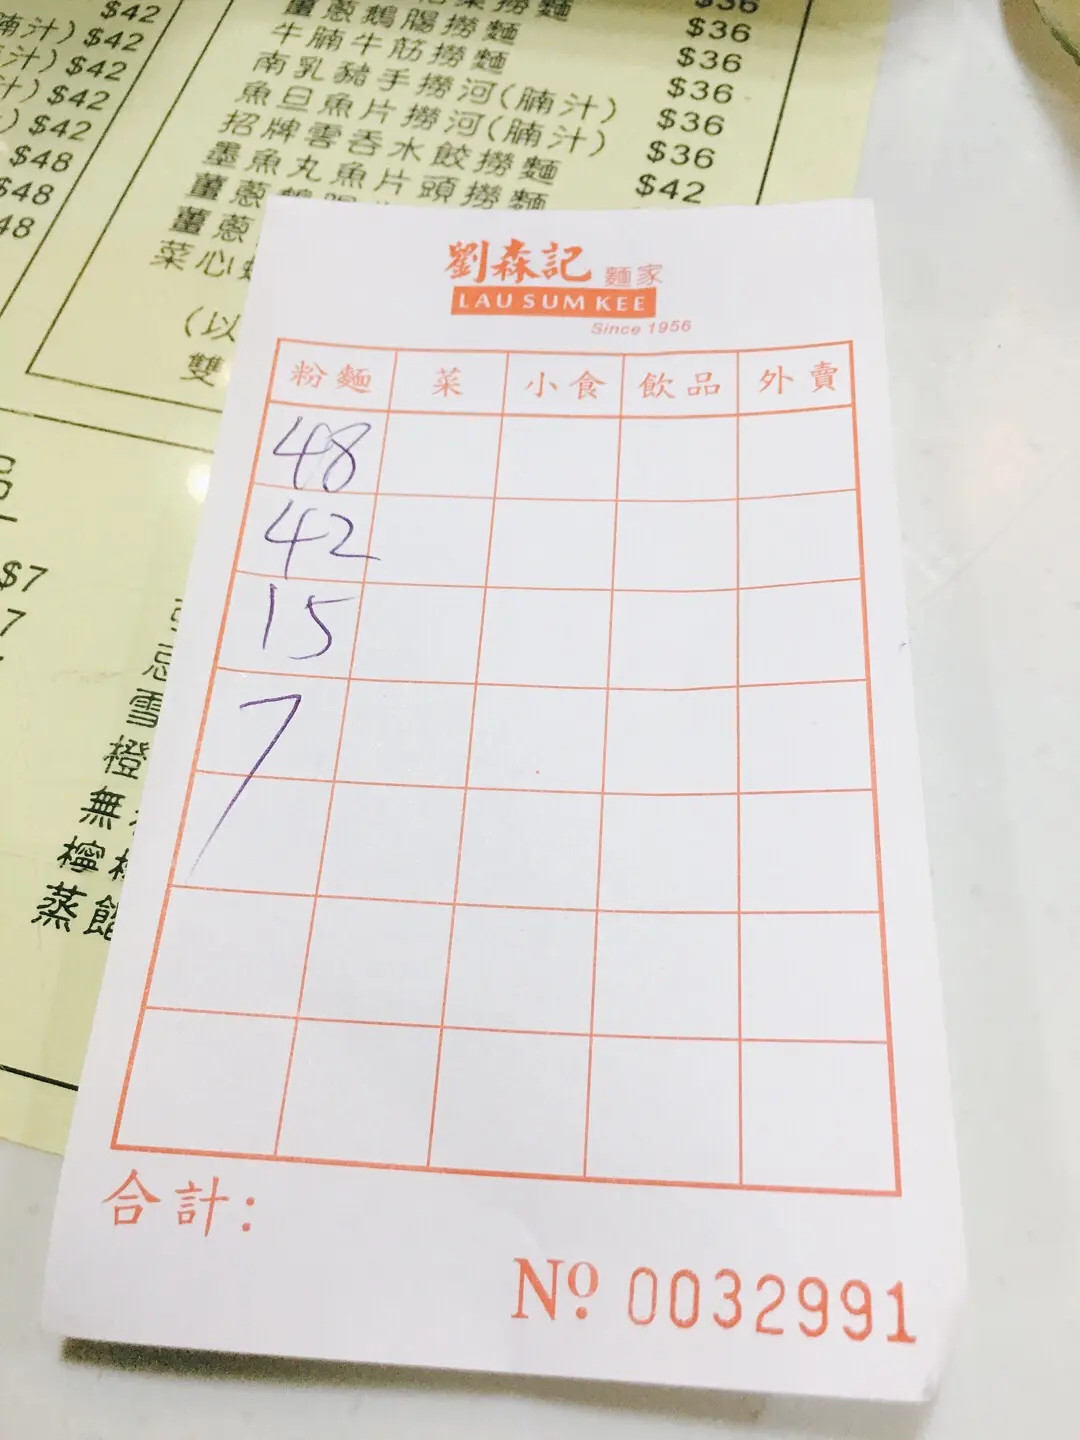 $42
$42
$42
$42
$42
$48
$48
48
撈麵 $36
薑蔥鵝腸撈麵 $36
牛腩牛筋撈麵 $36
南乳豬手撈河(腩汁) $36
魚旦魚片撈河(腩汁) $36
招牌雲吞水餃撈麵 $36
墨魚丸魚片頭撈麵 $42
薑蔥
薑蔥
菜心
(以
雙
劉森記 麵家
LAU SUM KEE
Since 1956
粉麵 菜 小食 飲品 外賣
48
42
15
7
合計:
Nº 0032991
$7
7
雪
橙
無
檸
蒸餡